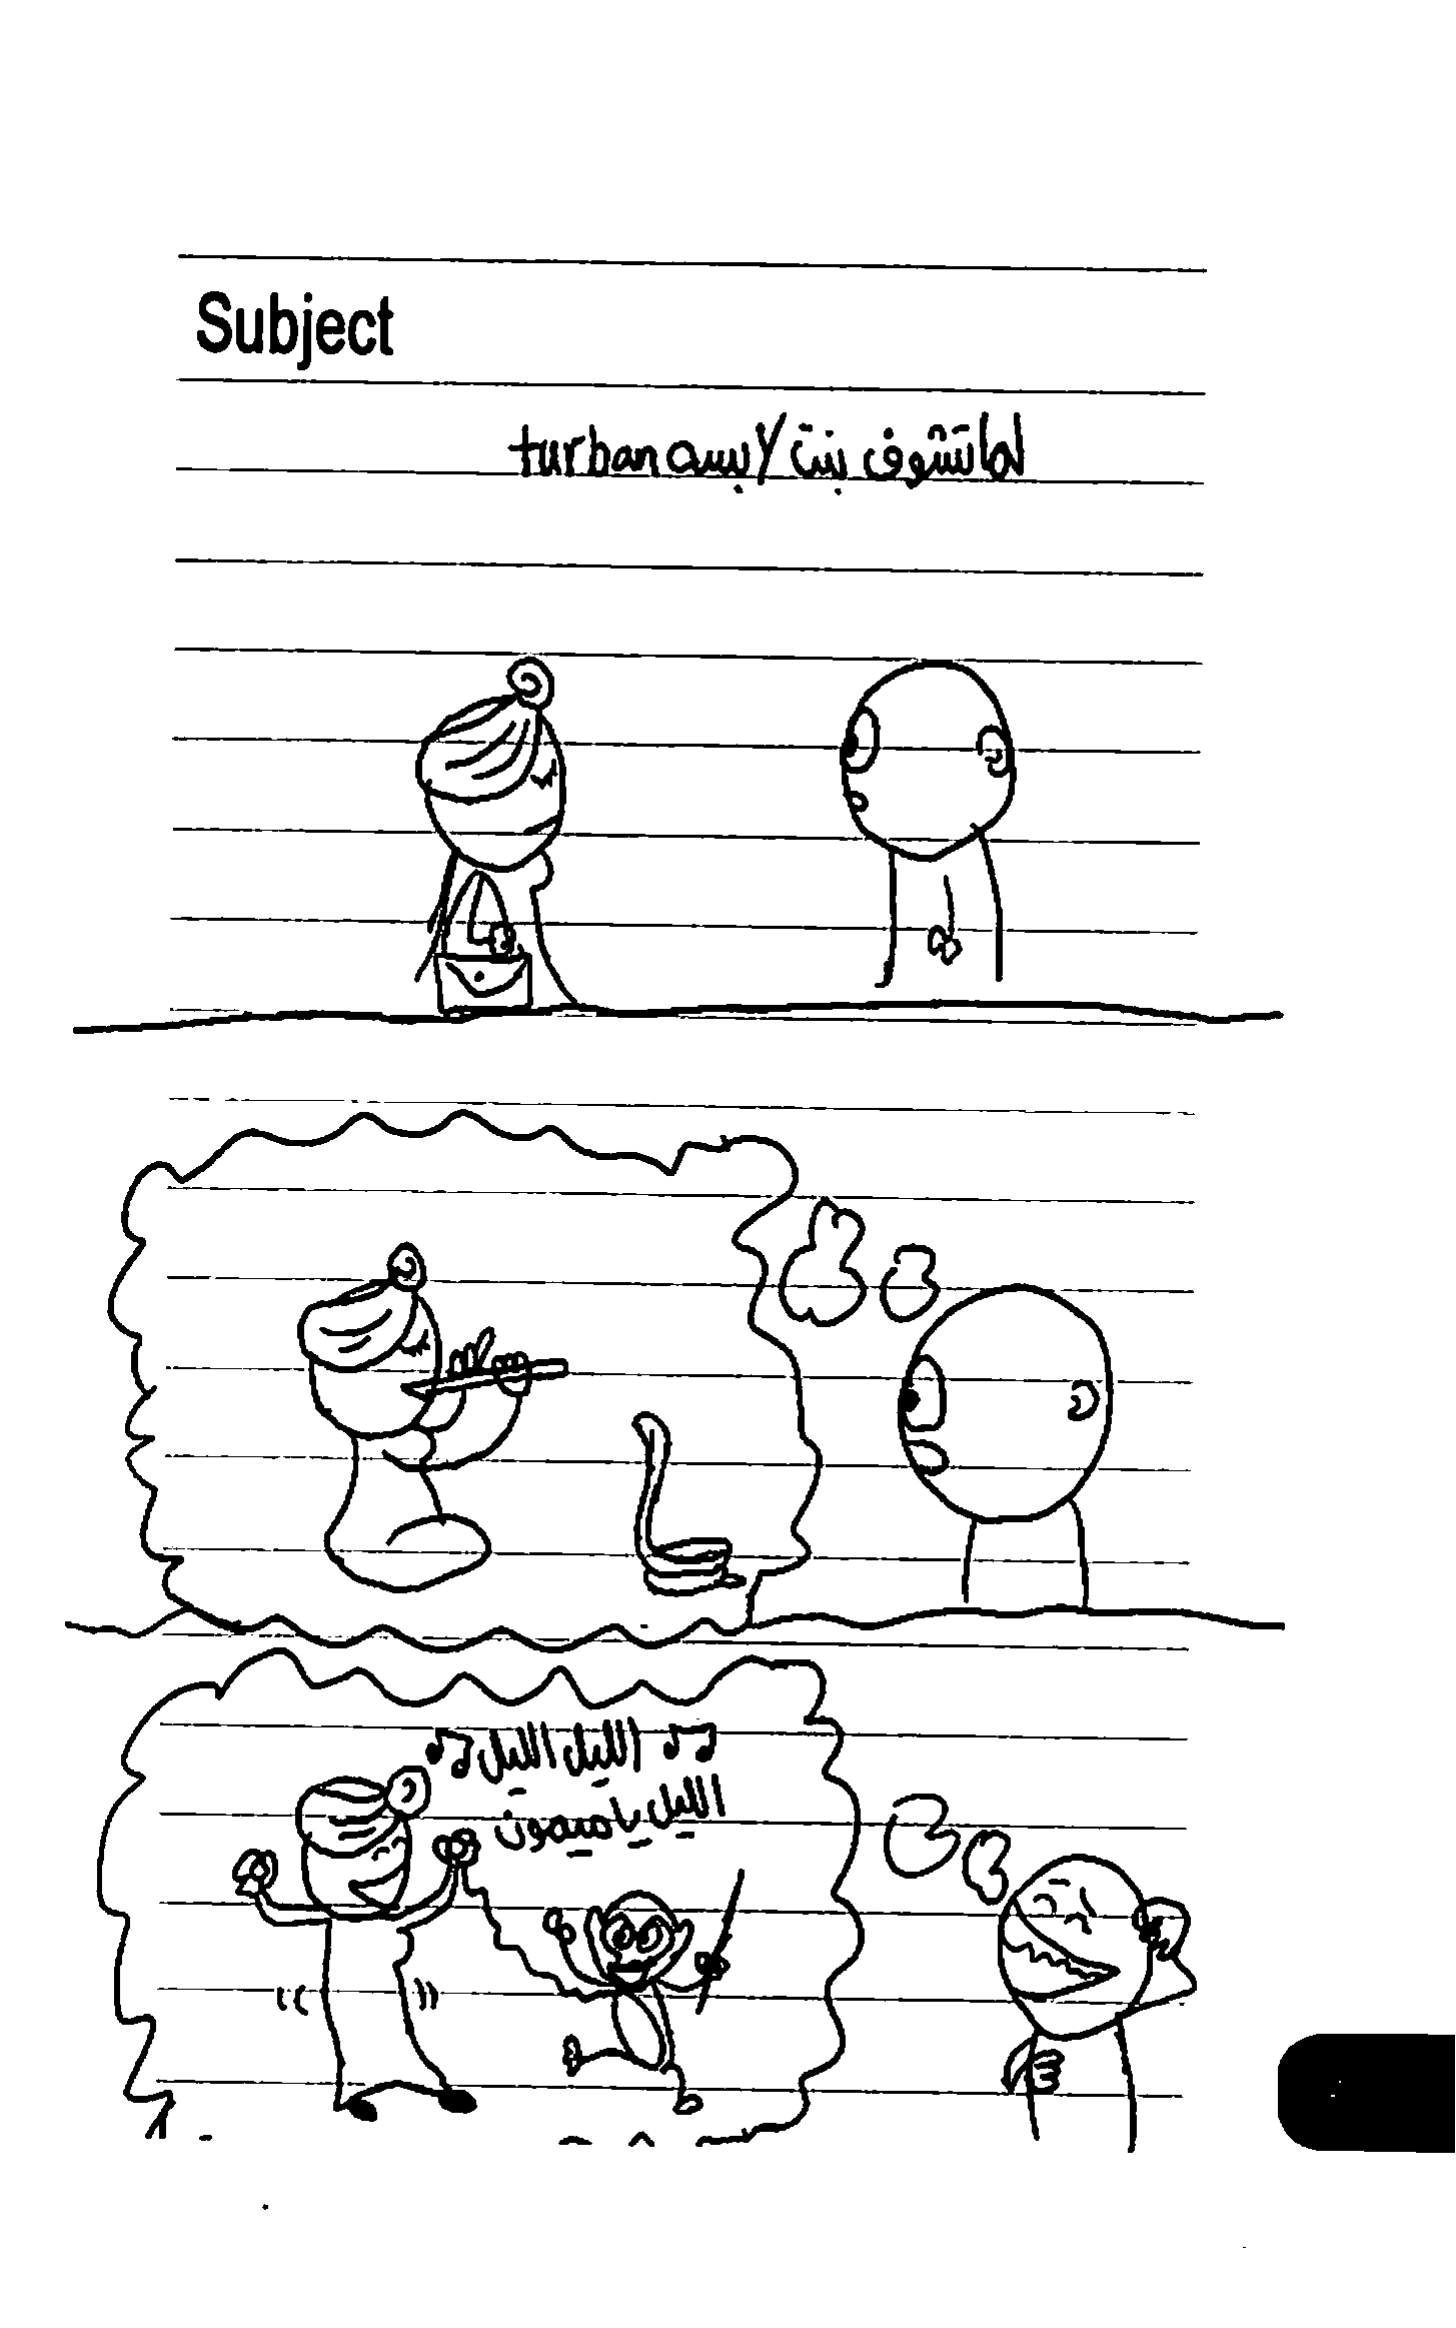 Subject
لما تشوف بنت لابسه turban
الليل الليل
الليل يا ميمون